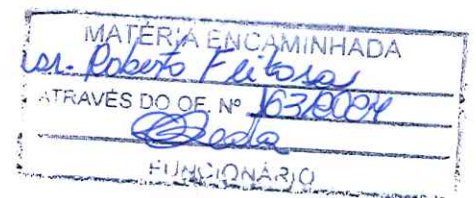 MATÉRIA ENCAMINHADA
Sr. Roberto Feitosa
ATRAVÉS DO OF. Nº 163/2024
FUNCIONÁRIO